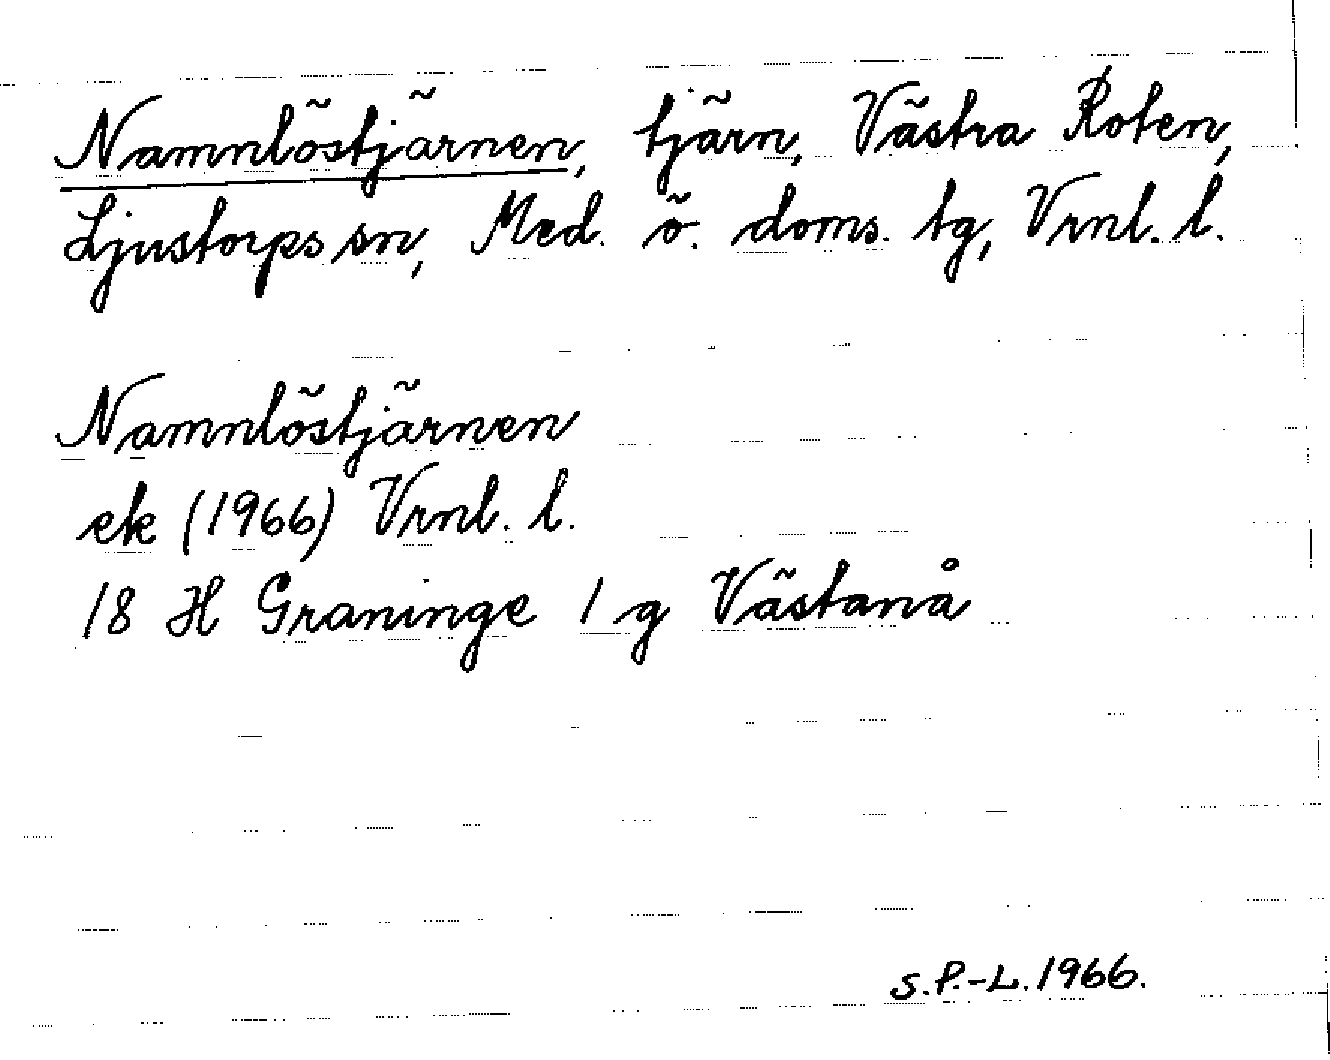 Namnlöstjärnen, tjärn, Västra Roten,
Ljustorps sn, Med. ö. doms. tg, Vrnl. l.
Namnlöstjärnen
ek (1966) Vrnl. l.
18 H Graninge 1 g Västanå
S.P.-L. 1966.